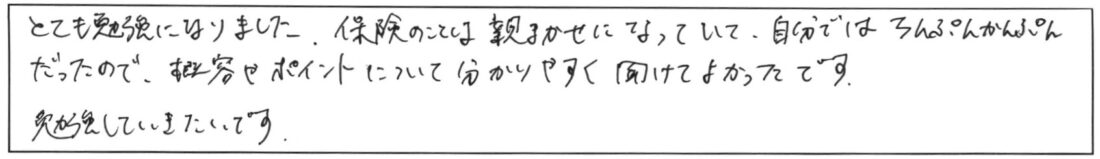 とても勉強になりました. 保険のことは親まかせになっていて、自分ではちんぷんかんぷん
だったので、概容やポイントについて分かりやすく聞けてよかったです.
勉強していきたいです.